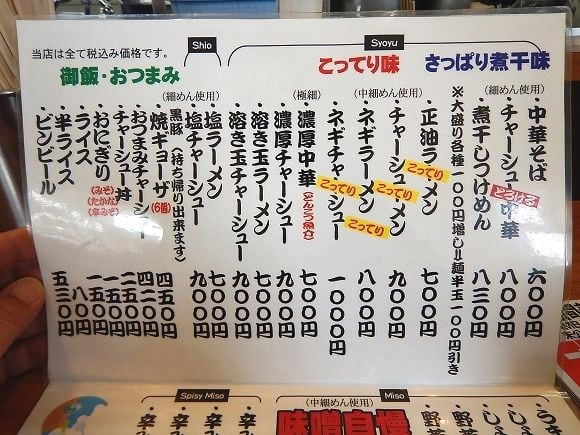 当店は全て税込み価格です。
Shio
Syoyu
さっぱり煮干味
こってり味
御飯・おつまみ
・中華そば 六〇〇円
(細めん使用)
・チャーシュー中華 九〇〇円
とろける
煮干しつけめん 八三〇円
※大盛り各種一〇〇円増し!!麺半玉一〇〇円引き
・正油ラーメン 七〇〇円
こってり
・チャーシュー・メン 九〇〇円
こってり
(中細めん使用)
・ネギラーメン 八〇〇円
こってり
・ネギチャーシュー 一〇〇〇円
こってり
(極細)
・濃厚中華 七〇〇円
(とんこつ魚介)
・濃厚チャーシュー 九〇〇円
・溶き玉ラーメン 七〇〇円
・溶き玉チャーシュー 九〇〇円
(細めん使用)
・塩ラーメン 七〇〇円
・塩チャーシュー 九〇〇円
黒豚(持ち帰り出来ます)
・焼キョーザ(6個) 四五〇円
・おつまみチャーシュー 四二〇円
・チャーシュー丼 二五〇円
・おにぎり 一五〇円
(みそ)
(たかな)
(辛みそ)
・ライス 一五〇円
・半ライス 八〇円
・ビンビール 五三〇円
Spisy Miso
(中細めん使用)
Miso
味噌自慢